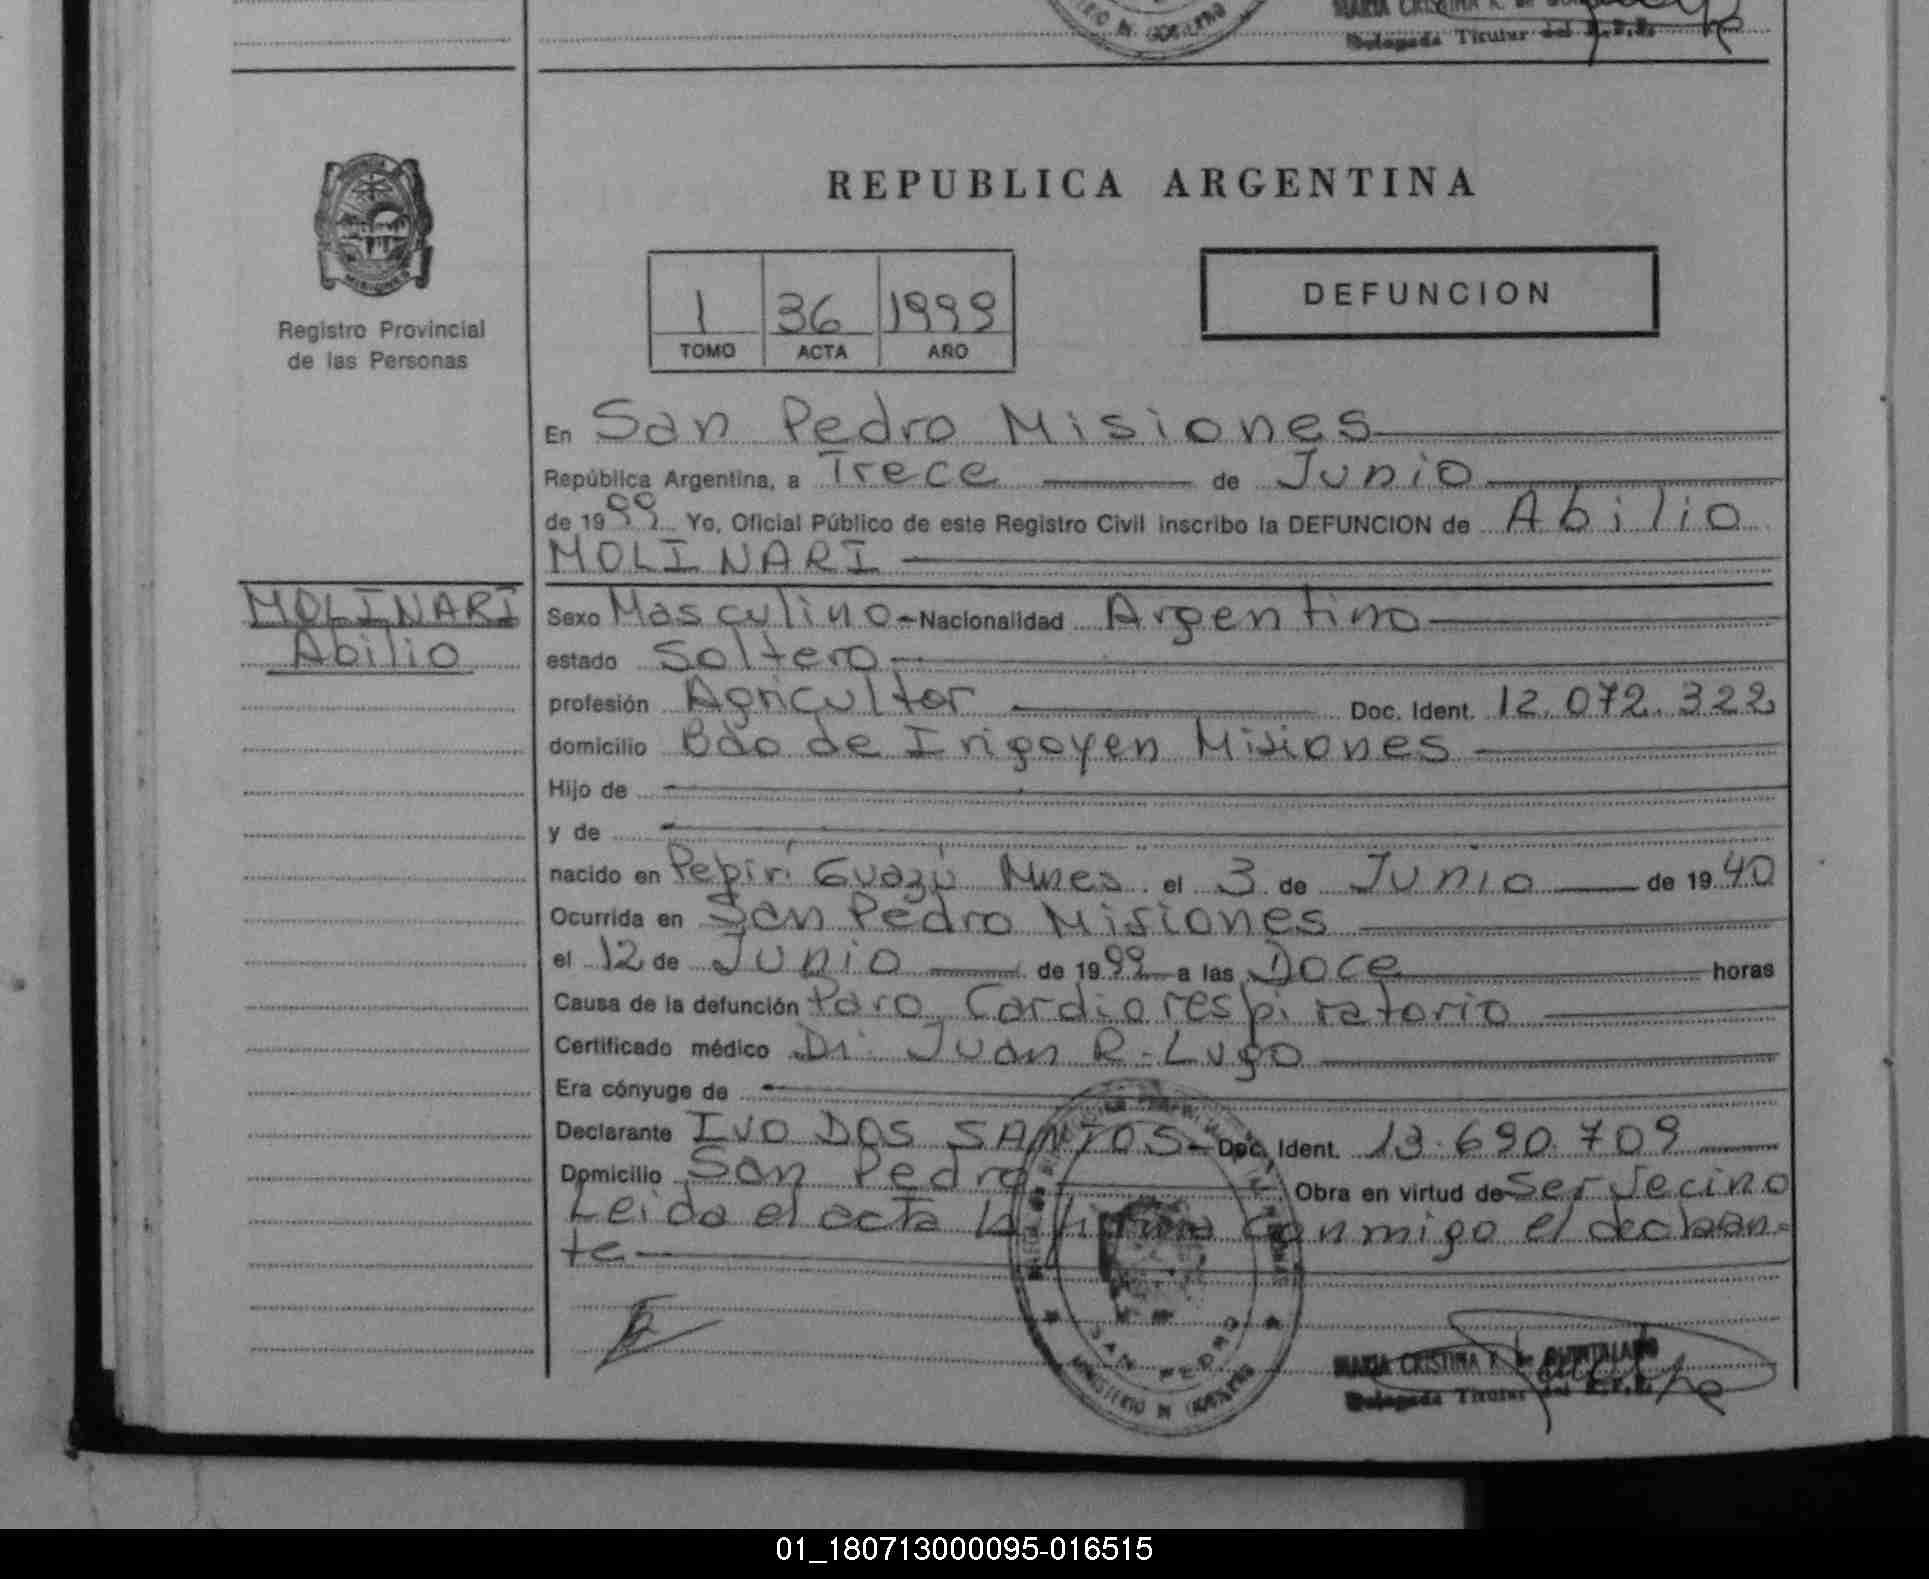 MARIA CRISTINA
Delegada Titular del R.P.P.
REPUBLICA ARGENTINA
MISIONES
Registro Provincial
de las Personas
1 36 1999
TOMO ACTA AÑO
DEFUNCION
En San Pedro Misiones
República Argentina, a Trece de Junio
de 1999 Yo, Oficial Público de este Registro Civil inscribo la DEFUNCION de Abilio
MOLINARI
MOLINARI
Abilio
Sexo Masculino - Nacionalidad Argentino
estado Soltero
profesión Agricultor Doc. Ident. 12.072.322
domicilio Bdo de Irigoyen Misiones
Hijo de
y de
nacido en Pepirí Guazú Mnes. el 3 de Junio de 1940
Ocurrida en San Pedro Misiones
el 12 de Junio de 1999 a las Doce horas
Causa de la defunción Paro Cardiorespiratorio
Certificado médico Dr. Juan R. Lugo
Era cónyuge de
Declarante IVO DOS SANTOS - Doc. Ident. 13.690.709
Domicilio San Pedro Obra en virtud de Ser Vecino
Leida el acta la firma conmigo el declaran-
te
SAN PEDRO
MINISTERIO DE GOBIERNO
MARIA CRISTINA de QUINTALANO
Delegada Titular del R.P.P.
01_180713000095-016515